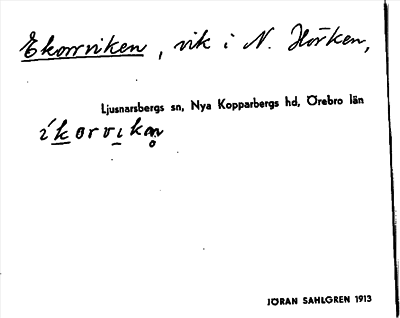 Ekorrviken, vik i N. Hörken,
Ljusnarsbergs sn, Nya Kopparbergs hd, Örebro län
íkorvikan
JÖRAN SAHLGREN 1913